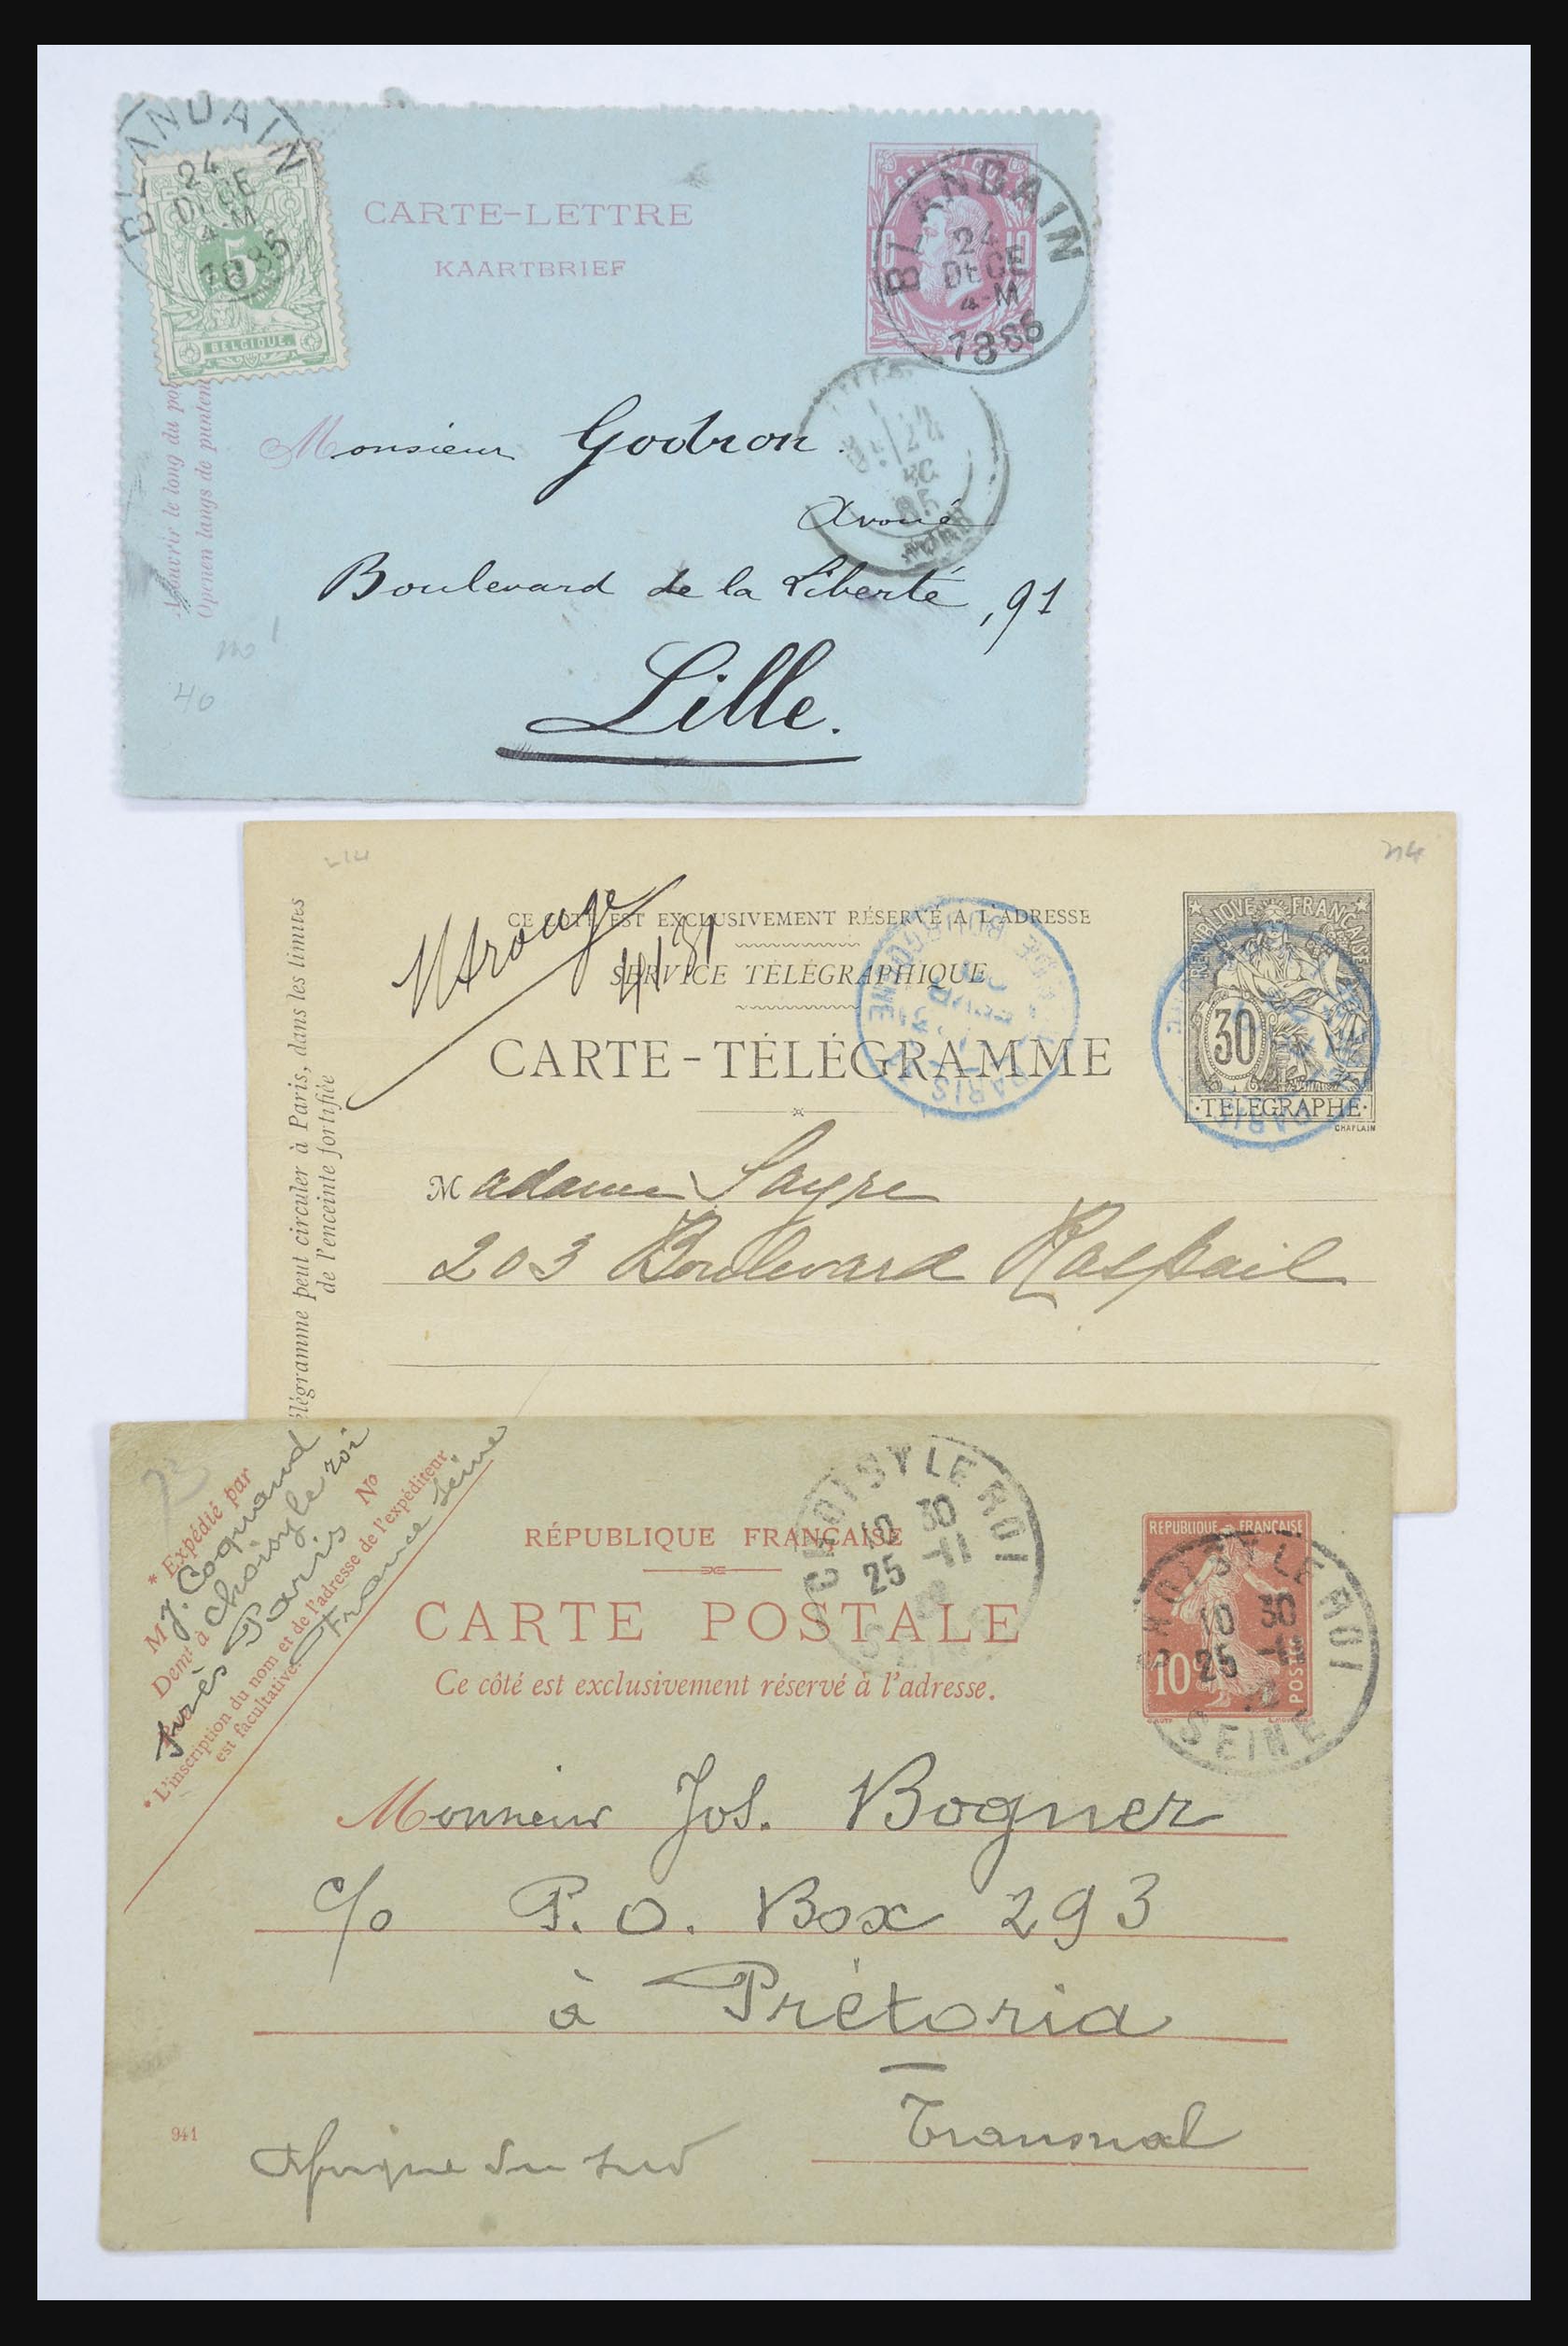 BLANDAIN
24
DECE
4-M
1885
5
BELGIQUE.
CARTE-LETTRE
KAARTBRIEF
BELGIQUE
10 10
BLANDAIN
24
DECE
4-M
1885
le long du
Openen langs de
Monsieur Godron.
Avoué
Boulevard de la Liberté, 91
Lille.
40
214
CE COTÉ EST EXCLUSIVEMENT RÉSERVÉ A L'ADRESSE
SERVICE TÉLÉGRAPHIQUE
CARTE-TÉLÉGRAMME
REPUBLIQUE FRANÇAISE
30
·TELEGRAPHE·
CHAPLAIN
PARIS
PARIS
peut circuler à Paris, dans les limites
de l'enceinte fortifiée
Madame Sayre
203 Boulevard Raspail
73
* Expédié par
M J. Coquand
Demt à Choisy le roi
près Paris No
* L'inscription du nom et de l'adresse de l'expéditeur
est facultative.
France Seine
RÉPUBLIQUE FRANÇAISE
CARTE POSTALE
Ce côté est exclusivement réservé à l'adresse.
CHOISY LE ROI
10 30
25 -11
REPUBLIQUE FRANÇAISE
10c
POSTES
CHOISY LE ROI
10 30
25 -11
SEINE
Monsieur Jos. Bogner
c/o P.O. Box 293
à Prétoria
Transvaal
Afrique du Sud
941